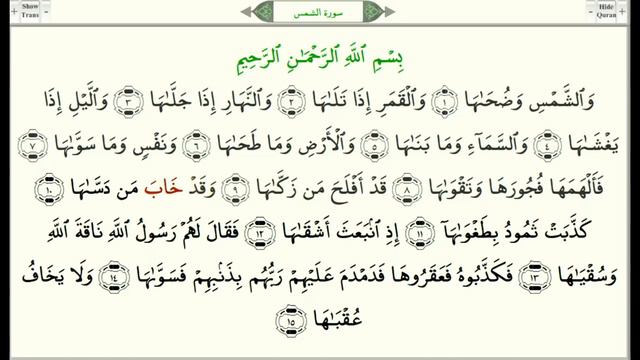 Show Trans
سورة الشمس
Hide Quran
بِسْمِ ٱللَّهِ ٱلرَّحْمَـٰنِ ٱلرَّحِيمِ
وَٱلشَّمْسِ وَضُحَىٰهَا ﴿١﴾ وَٱلْقَمَرِ إِذَا تَلَىٰهَا ﴿٢﴾ وَٱلنَّهَارِ إِذَا جَلَّىٰهَا ﴿٣﴾ وَٱلَّيْلِ إِذَا
يَغْشَىٰهَا ﴿٤﴾ وَٱلسَّمَآءِ وَمَا بَنَىٰهَا ﴿٥﴾ وَٱلْأَرْضِ وَمَا طَحَىٰهَا ﴿٦﴾ وَنَفْسٍ وَمَا سَوَّىٰهَا ﴿٧﴾
فَأَلْهَمَهَا فُجُورَهَا وَتَقْوَىٰهَا ﴿٨﴾ قَدْ أَفْلَحَ مَن زَكَّىٰهَا ﴿٩﴾ وَقَدْ خَابَ مَن دَسَّىٰهَا ﴿١٠﴾
كَذَّبَتْ ثَمُودُ بِطَغْوَىٰهَآ ﴿١١﴾ إِذِ ٱنۢبَعَثَ أَشْقَىٰهَا ﴿١٢﴾ فَقَالَ لَهُمْ رَسُولُ ٱللَّهِ نَاقَةَ ٱللَّهِ
وَسُقْيَـٰهَا ﴿١٣﴾ فَكَذَّبُوهُ فَعَقَرُوهَا فَدَمْدَمَ عَلَيْهِمْ رَبُّهُم بِذَنۢبِهِمْ فَسَوَّىٰهَا ﴿١٤﴾ وَلَا يَخَافُ
عُقْبَـٰهَا ﴿١٥﴾